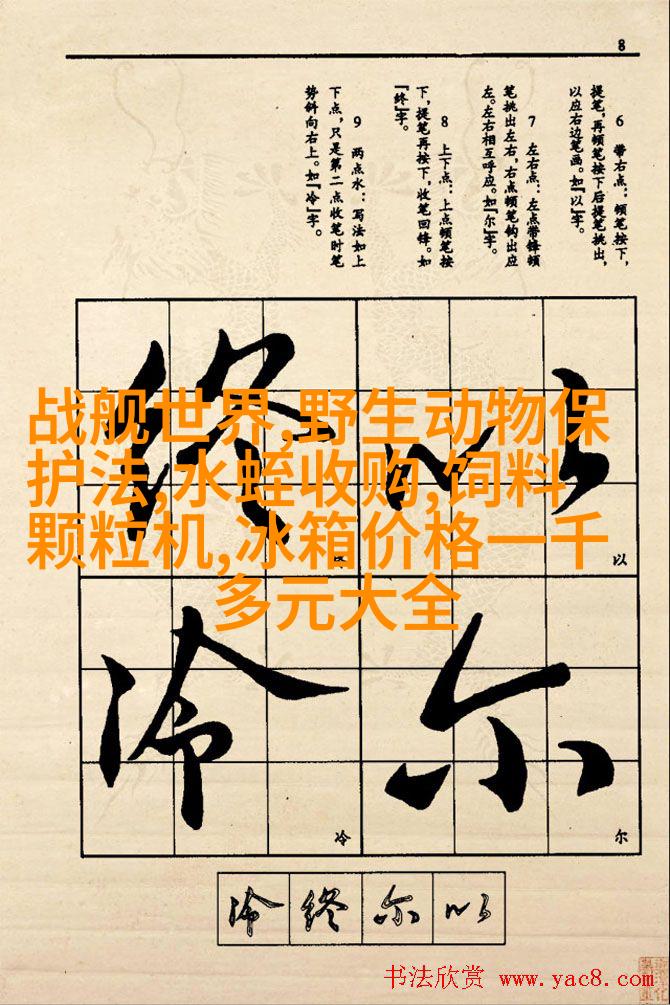 8
6 带右点：顿笔按下，
提笔，再顿笔按下后提笔挑出，
以应右边笔画。如『以』字。
7 左右点：左点带锋顿
笔挑出左右，右点顿笔钩出应
左。左右相互呼应。如『尔』字。
8 上下点：上点顿笔按
下，提笔再按下，收笔回锋。如
『终』字。
9 两点水：写法如上
下点，只是第二点收笔时笔
势斜向右上。如『冷』字。
战舰世界,野生动物保
护法,水蛭收购,饲料
颗粒机,冰箱价格一千
多元大全
以
终
以
尔
冷
尔
冷
冷 终 尔 以
书法欣赏 www.yac8.com